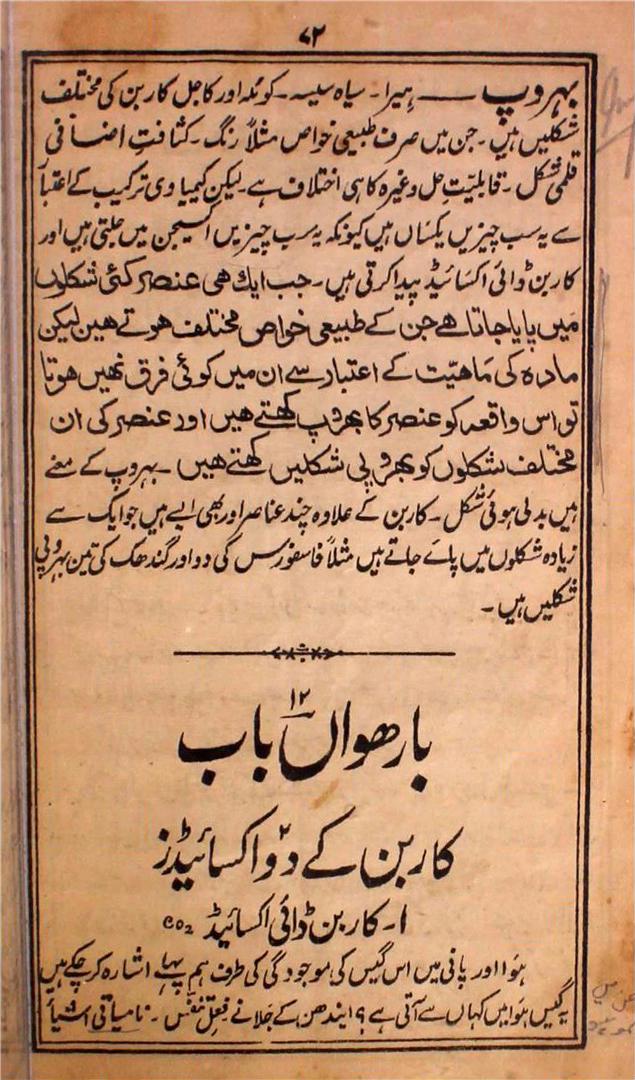 ۷۲
بہروپ — ہیرا۔ سیاہ سیسہ۔ کوئلہ اور کاجل کاربن کی مختلف
شکلیں ہیں۔ جن میں صرف طبیعی خواص مثلاً رنگ۔ کثافتِ اضافی
قلمی شکل۔ قابلیّتِ حل وغیرہ کا ہی اختلاف ہے۔ لیکن کیمیاوی ترکیب کے اعتبار
سے یہ سب چیزیں یکساں ہیں کیونکہ یہ سب چیزیں اکسیجن میں جلتی ہیں اور
کاربن ڈائی اکسائیڈ پیدا کرتی ہیں۔ جب ایک ھی عنصر کئی شکلوں
میں پایا جاتا ھے جن کے طبیعی خواص مختلف ھوتے ھین لیکن
مادہ کی ماھیّت کے اعتبار سے ان میں کوئی فرق نھیں ھوتا
تو اس واقعہ کو عنصر کا بھروپ کھتے ھیں اور عنصر کی ان
مختلف شکلوں کو بھروپی شکلیں کھتے ھیں۔ بہروپ کے معنے
ہیں بدلی ہوئی شکل۔ کاربن کے علاوہ چند عناصر اور بھی ایسے ہیں جو ایک سے
زیادہ شکلوں میں پائے جاتے ہیں مثلاً فاسفورس کی دو اور گندھک کی تین بہروپی
شکلیں ہیں۔
۱۲
بارھواں باب
کاربن کے دو۲ اکسائیڈز
۱۔ کاربن ڈائی اکسائیڈ CO₂
ہَوا اور پانی میں اس گیس کی موجودگی کی طرف ہم پہلے اشارہ کر چکے ہیں
یہ گیس ہَوا میں کہاں سے آتی ہے؟ ایندھن کے جلانے فعلِ تنفّس۔ نامیاتی اشیأ